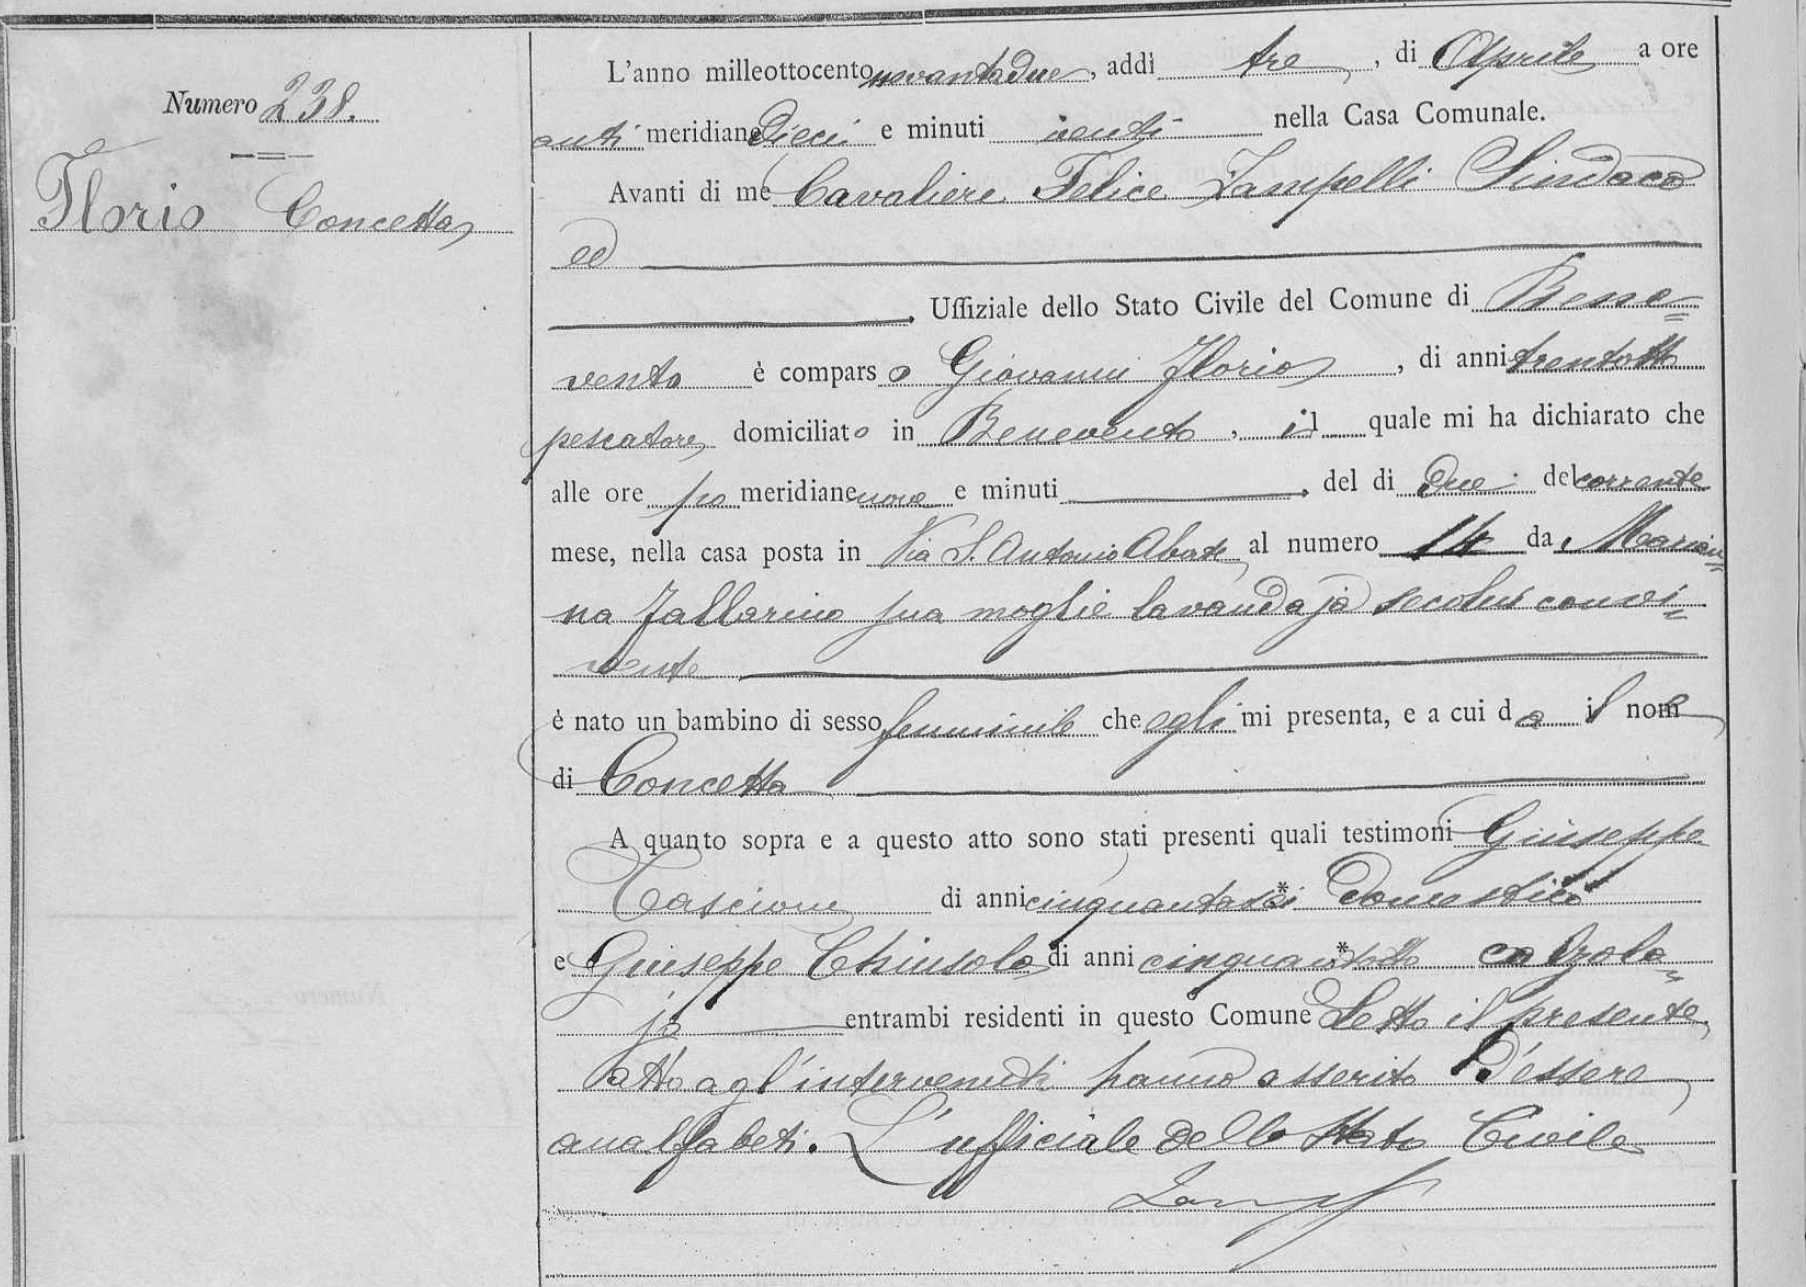 Numero 238.
Florio Concetta
L'anno milleottocento novantadue, addì tre, di Aprile a ore
anti meridiane dieci e minuti venti nella Casa Comunale.
Avanti di me Cavaliere Felice Zampelli Sindaco
ed
Uffiziale dello Stato Civile del Comune di Bene=
vento è comparso Giovanni Florio, di anni trentotto
pescatore, domiciliato in Benevento, il quale mi ha dichiarato che
alle ore po meridiane nove e minuti , del dì due del corrente
mese, nella casa posta in Via S. Antonio Abate, al numero 14 da Marian=
na Tallarino sua moglie lavandaja secolui convi=
vente
è nato un bambino di sesso femminile che egli mi presenta, e a cui da il nome
di Concetta
A quanto sopra e a questo atto sono stati presenti quali testimoni Giuseppe
Cascione di anni cinquantasei domestico
e Giuseppe Chiusolo di anni cinquantotto calzola=
jo entrambi residenti in questo Comune Letto il presente
atto agl'intervenuti hanno asserito d'essere
analfabeti. L'ufficiale dello Stato Civile